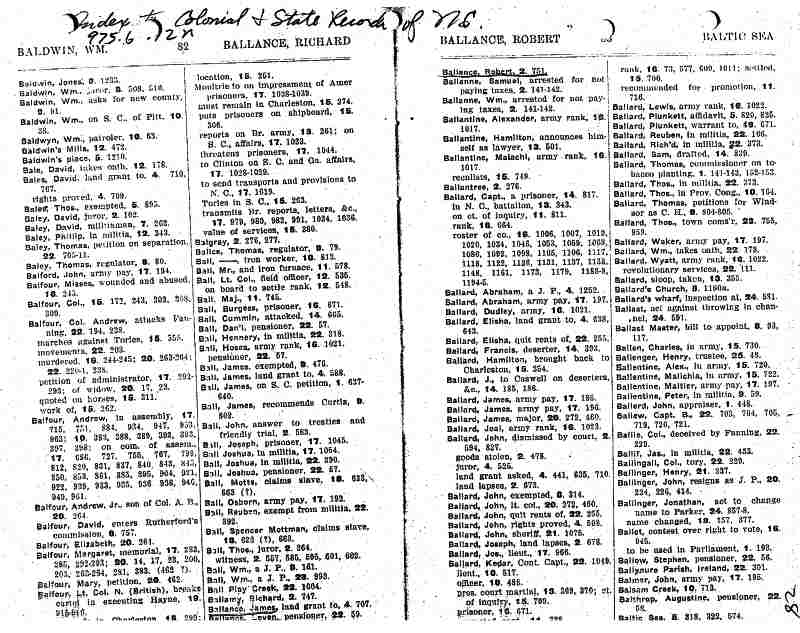 Index to Colonial & State Records of N.C.
975.6
BALDWIN, WM.
82
BALLANCE, RICHARD
Baldwin, Jones, 9. 1233.
Baldwin, Wm., juror, 8. 508, 510.
Baldwin, Wm., asks for new county,
9. 91.
Baldwin, Wm., on S. C. of Pitt, 10.
38.
Baldwyn, Wm., patroler, 10. 63.
Baldwin's Mills, 12. 473.
Baldwin's place, 5. 1210.
Bale, David, takes oath, 12. 178.
Bales, David, land grant to, 4. 710,
767.
rights proved, 4. 709.
Baley, Thos., exempted, 5. 895.
Baley, David, juror, 2. 102.
Baley, David, militiaman, 7. 263.
Baley, Phillip, in militia, 12. 343.
Baley, Thomas, petition on separation,
22. 705-11.
Baley, Thomas, regulator, 8. 80.
Balford, John, army pay, 17. 194.
Balfour, Misses, wounded and abused,
16. 243.
Balfour, Col., 15. 172, 243, 303, 308,
309.
Balfour, Col. Andrew, attacks Fanning,
22. 194, 228.
marches against Tories, 15. 355.
movements, 22. 203.
murdered, 16. 244-245; 20. 263-264;
petition of administrator, 17. 292-
293; of widow, 20. 17, 23.
quoted on horses, 15. 311.
work of, 15. 262.
Balfour, Andrew, in assembly, 17.
Balfour, Andrew, Jr., son of Col. A. B.,
20. 264.
Balfour, David, enters Rutherford's
commission, 6. 757.
Balfour, Elizabeth, 20. 261.
Balfour, Margaret, memorial, 17. 283,
Balfour, Mary, petition, 20. 462.
Balfour, Lt. Col. N. (British), breaks
cartel in executing Hayne, 19.
location, 15. 251.
Moultrie to on impressment of Amer
prisoners, 17. 1038-1039.
must remain in Charleston, 15. 274.
puts prisoners on shipboard, 15.
306.
reports on Br. army, 13. 261; on
S. C., affairs, 17. 1033.
threatens prisoners, 17. 1044.
to Clinton on R. C. and Ga. affairs,
17. 1028-1029.
to send transports and provisions to
N. C., 17. 1019.
Tories in S. C., 15. 263.
transmits Br. reports, letters, &c.,
17. 979, 980, 982, 991, 1034, 1036.
value of services, 15. 380.
Balgray, 2. 276, 277.
Balica, Thomas, regulator, 9. 79.
Ball, ——, iron worker, 10. 812.
Ball, Mr., and iron furnace, 11. 578.
Ball, Lt. Col., field officer, 12. 535.
on board to settle rank, 12. 548.
Ball, Maj., 11. 745.
Ball, Burgess, prisoner, 16. 671.
Ball, Cummin, attacked, 14. 665.
Ball, Dan'l, pensioner, 22. 57.
Ball, Hennery, in militia, 22. 318.
Ball, Hosea, army rank, 16. 1021.
pensioner, 22. 57.
Ball, James, exempted, 9. 476.
Ball, James, land grant to, 4. 588.
Ball, James, on S. C. petition, 1. 637-
640.
Ball, James, recommends Curtis, 9.
802.
Ball, John, answer to treaties and
friendly trial, 2. 583.
Ball, Joseph, prisoner, 17. 1045.
Ball Joshua, in militia, 17. 1054.
Ball Joshua, in militia, 22. 290.
Ball, Joshua, pensioner, 22. 57.
Ball, Motts, claims slave, 18. 623,
663 (?).
Ball, Osborn, army pay, 17. 192.
Ball, Reuben, exempt from militia, 22.
892.
Ball, Spencer Mottman, claims slave,
18. 623 (?), 663.
Ball, Thos., juror, 2. 364.
witness, 2. 557, 585, 595, 601, 602.
Ball, Wm., a J. P., 9. 161.
Ball, Wm., a J. P., 23. 993.
Ball Play Creek, 22. 1004.
Ballamy, Richard, 2. 747.
Ballance, James, land grant to, 4. 707.
pensioner, 22. 59.
BALLANCE, ROBERT
BALTIC SEA
Ballance, Robert, 2. 751.
Ballance, Samuel, arrested for not
paying taxes, 2. 141-142.
Ballance, Wm., arrested for not paying
taxes, 2. 141-142.
Ballantine, Alexander, army rank, 16.
1017.
Ballantine, Hamilton, announces himself
as lawyer, 13. 501.
Ballantine, Malachi, army rank, 16.
1017.
recalists, 15. 749.
Ballantree, 2. 276.
Ballard, Capt., a prisoner, 14. 817.
in N. C., battalion, 13. 343.
on ct. of inquiry, 11. 811.
rank, 16. 954.
roster of co., 16. 1006, 1007, 1012,
1194-5.
Ballard, Abraham, a J. P., 4. 1252.
Ballard, Abraham, army pay, 17. 197.
Ballard, Dudley, army, 16. 1021.
Ballard, Elisha, land grant to, 4. 638,
643.
Ballard, Elisha, quit rents of, 22. 255.
Ballard, Francis, deserter, 14. 293.
Ballard, Hamilton, brought back to
Charleston, 15. 354.
Ballard, J., in Caswell on deserters,
&c., 14. 185, 186.
Ballard, James, army pay, 17. 196.
Ballard, James, army pay, 17. 196.
Ballard, James, major, 20. 272, 460.
Ballard, Joal, army rank, 16. 1023.
Ballard, John, dismissed by court, 2.
594, 827.
goods stolen, 2. 478.
juror, 4. 526.
land grant asked, 4. 441, 635, 710.
land lapses, 2. 673.
Ballard, John, exempted, 8. 314.
Ballard, John, lt. col., 20. 272, 460.
Ballard, John, quit rents of, 22. 255.
Ballard, John, rights proved, 4. 508.
Ballard, John, sheriff, 21. 1075.
Ballard, Joseph, land lapses, 2. 678.
Ballard, Jos., lieut., 17. 966.
Ballard, Kedar, Cont. Capt., 22. 1049.
lieut, 10. 517.
officer, 10. 488.
pres. court martial, 13. 369, 370; ct.
of inquiry, 15. 709.
prisoner, 16. 671.
rank, 16. 73, 577, 600, 1011; settled,
15. 706.
recommended for promotion, 11.
716.
Ballard, Lewis, army rank, 16. 1022.
Ballard, Plunkett, affidavit, 5. 820, 825.
Ballard, Plunkett, warrant to, 49. 671.
Ballard, Reuben, in militia, 22. 106.
Ballard, Rich'd, in militia, 22. 373.
Ballard, Sam, drafted, 14. 839.
Ballard, Thomas, commission on tobacco
planting, 1. 141-143, 152-153.
Ballard, Thos., in militia, 22. 373.
Ballard, Thos., in Prov. Cong., 10. 164.
Ballard, Thomas, petitions for Windsor
as C. H., 9. 804-805.
Ballard, Thos., town com'r, 22. 755,
959.
Ballard, Waker, army pay, 17. 197.
Ballard, Wm., takes oath, 22. 178.
Ballard, Wyatt, army rank, 16. 1022.
revolutionary services, 22. 111.
Ballard, sloop, taken, 13. 355.
Ballard's Church, 8. 1160a.
Ballard's wharf, inspection at, 24. 581.
Ballast, act against throwing in channel,
24. 591.
Ballast Master, bill to appoint, 8. 93,
117.
Ballen, Charles, in army, 15. 730.
Ballenger, Henry, trustee, 25. 48.
Ballentine, Alex., in army, 15. 720.
Ballentine, Malichia, in army, 15. 722.
Ballentine, Maltier, army pay, 17. 197.
Ballentine, Peter, in militia, 9. 59.
Ballerd, John, appraiser, 1. 448.
Ballew, Capt. B., 22. 703, 704, 705,
719, 720, 721.
Ballie, Col., deceived by Fanning, 22.
229.
Ballif, Jas., in militia, 22. 453.
Ballingall, Col., tory, 22. 229.
Ballinger, Henry, 21. 337.
Ballinger, John, resigns as J. P., 20.
224, 226, 414.
Ballinger, Jonathan, act to change
name to Parker, 24. 857-8.
name changed, 19. 157, 377.
Ballot, contest over right to vote, 16.
945.
to be used in Parliament, 1. 193.
Ballow, Stephen, pensioner, 22. 56.
Ballynure Parish, Ireland, 22. 301.
Balmer, John, army pay, 17. 195.
Balsam Creek, 10. 713.
Balthrop, Augustine, pensioner, 22.
58.
Baltic Sea, 8. 318, 322, 574.
82